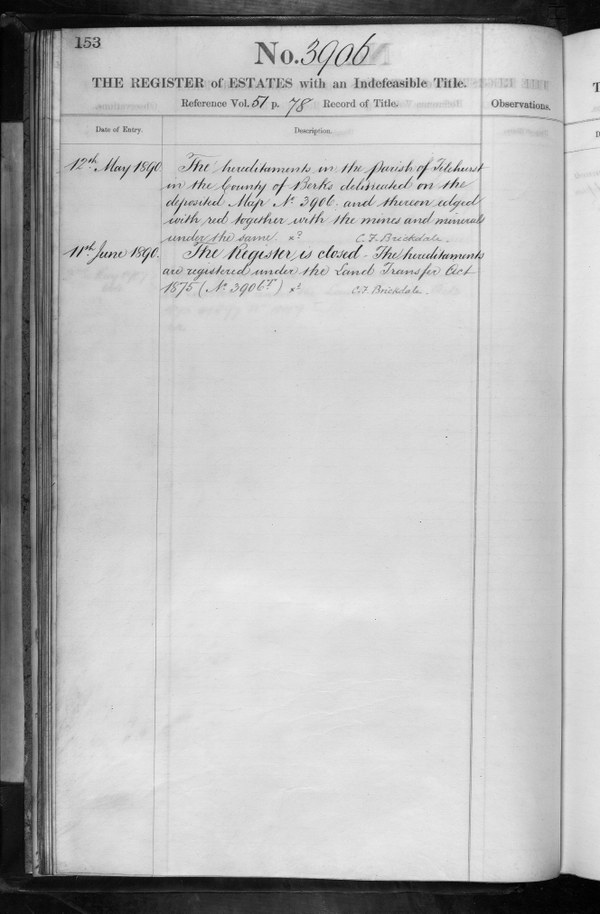 153
No. 3906
THE REGISTER of ESTATES with an Indefeasible Title.
Reference Vol. 51 p. 78 Record of Title.
Observations.
Date of Entry.
Description.
12th May 1890
The hereditaments in the parish of Tilehurst
in the County of Berks delineated on the
deposited Map No. 3906 and thereon edged
with red together with the mines and minerals
under the same. C. F. Brickdale.
11th June 1890.
The Register is closed. The hereditaments
are registered under the Land Transfer Act
1875 (No. 3906T) C. F. Brickdale.